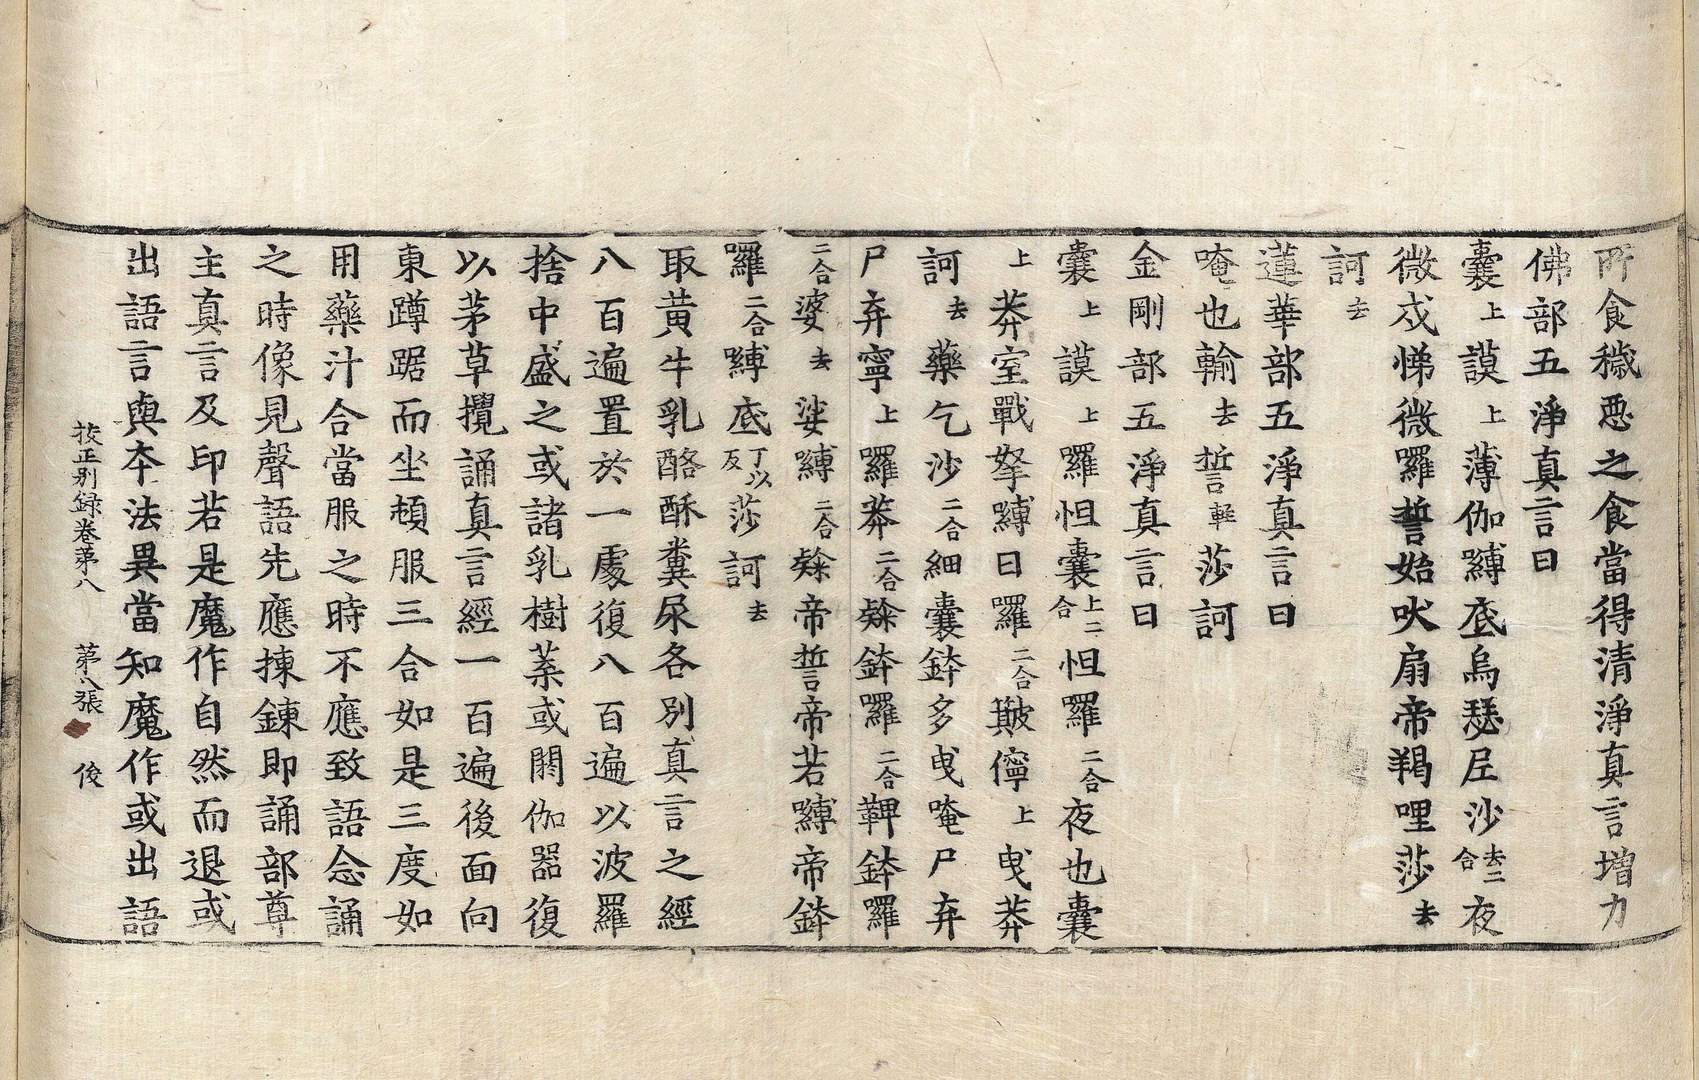 所食穢惡之食當得清淨真言增力
佛部五淨真言曰
囊上謨上薄伽嚩底烏瑟尼沙去二合夜
微戍悌微囉誓始吠扇帝羯哩莎去
訶去
蓮華部五淨真言曰
唵也輸去誓輕莎訶
金剛部五淨真言曰
囊上謨上羅怛囊上二合怛羅二合夜也囊
上莽室戰拏嚩曰羅二合簸儜上曳莽
訶去藥乞沙二合細囊鉢多曳唵尸弃
尸弃寧上囉莽二合㷮鉢囉二合鞞鉢囉
二合婆去娑嚩二合㷮帝誓帝若嚩帝鉢
囉二合嚩底丁以反莎訶去
取黃牛乳酪酥糞尿各別真言之經
八百遍置於一處復八百遍以波羅
捨中盛之或諸乳樹葉或閼伽器復
以茅草攪誦真言經一百遍後面向
東蹲踞而坐頓服三合如是三度如
用藥汁合當服之時不應致語念誦
之時像見聲語先應揀鍊即誦部尊
主真言及印若是魔作自然而退或
出語言與本法異當知魔作或出語
挍正別錄卷第八 第八張 俊